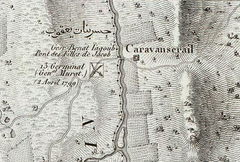 جسر بنات يعقوب
Gesr Benat Iaqoub
Pont des Filles de Jacob
Caravanserail
15 Germinal
(Gen.l Murat)
(2 Avril 1799)